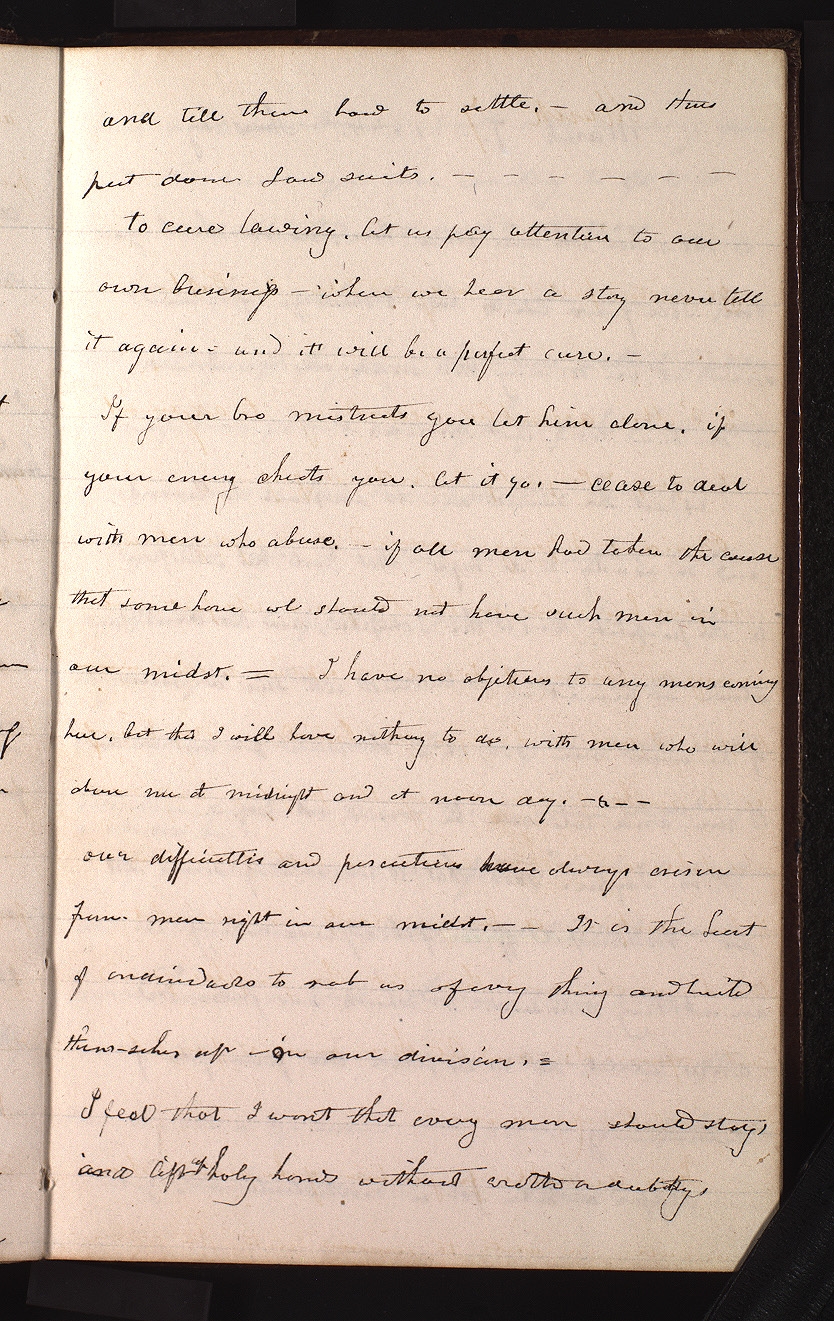 and tell them how to settle. — and thus
put down Law suits. — — — — — —
to cure lawing. let us pay attention to our
own business — when we hear a story never tell
it again - and it will be a perfect cure. —
If your bro mistrusts you let him alone. if
your enemy cheats you. let it go. — cease to deal
with men who abuse. - if all men had taken the course
that some have we should not have such men in
our midst. = I have no objections to any mans coming
here. but tho I will have nothing to do. with men who will
abuse me at midnight and at noon day. — — —
our difficulties and persecutions have always arisen
from men right in our midst. — — It is the Lust
of to rob us of every thing and build
them-selves up - on our division. =
I feel that I want that every man should stay,
and lift up holy hands without wrath or doubtings